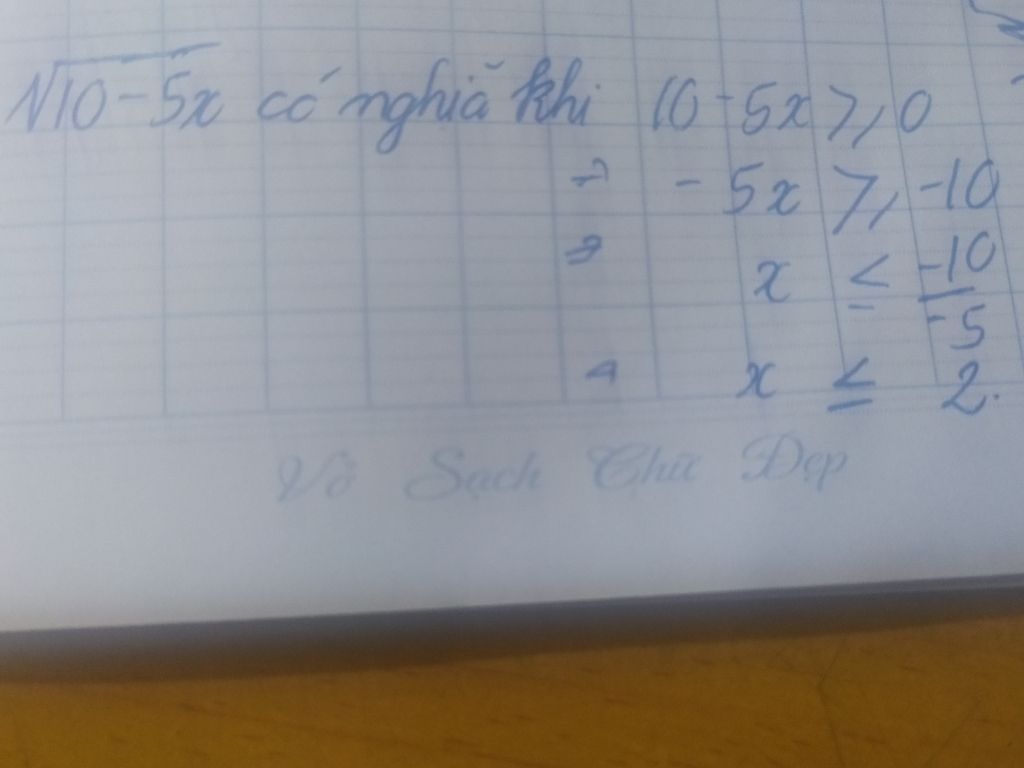 √10-5x có nghiã khi 10-5x ≥ 0
→ -5x ≥ -10
→ x ≤ -10/-5
→ x ≤ 2.
Vở Sạch Chữ Đẹp